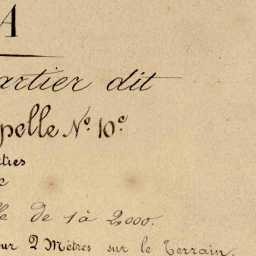 A
artier dit
pelle N.o 10.e
tres
e
le de 1 à 2000.
our 2 Mètres sur le Terrain.